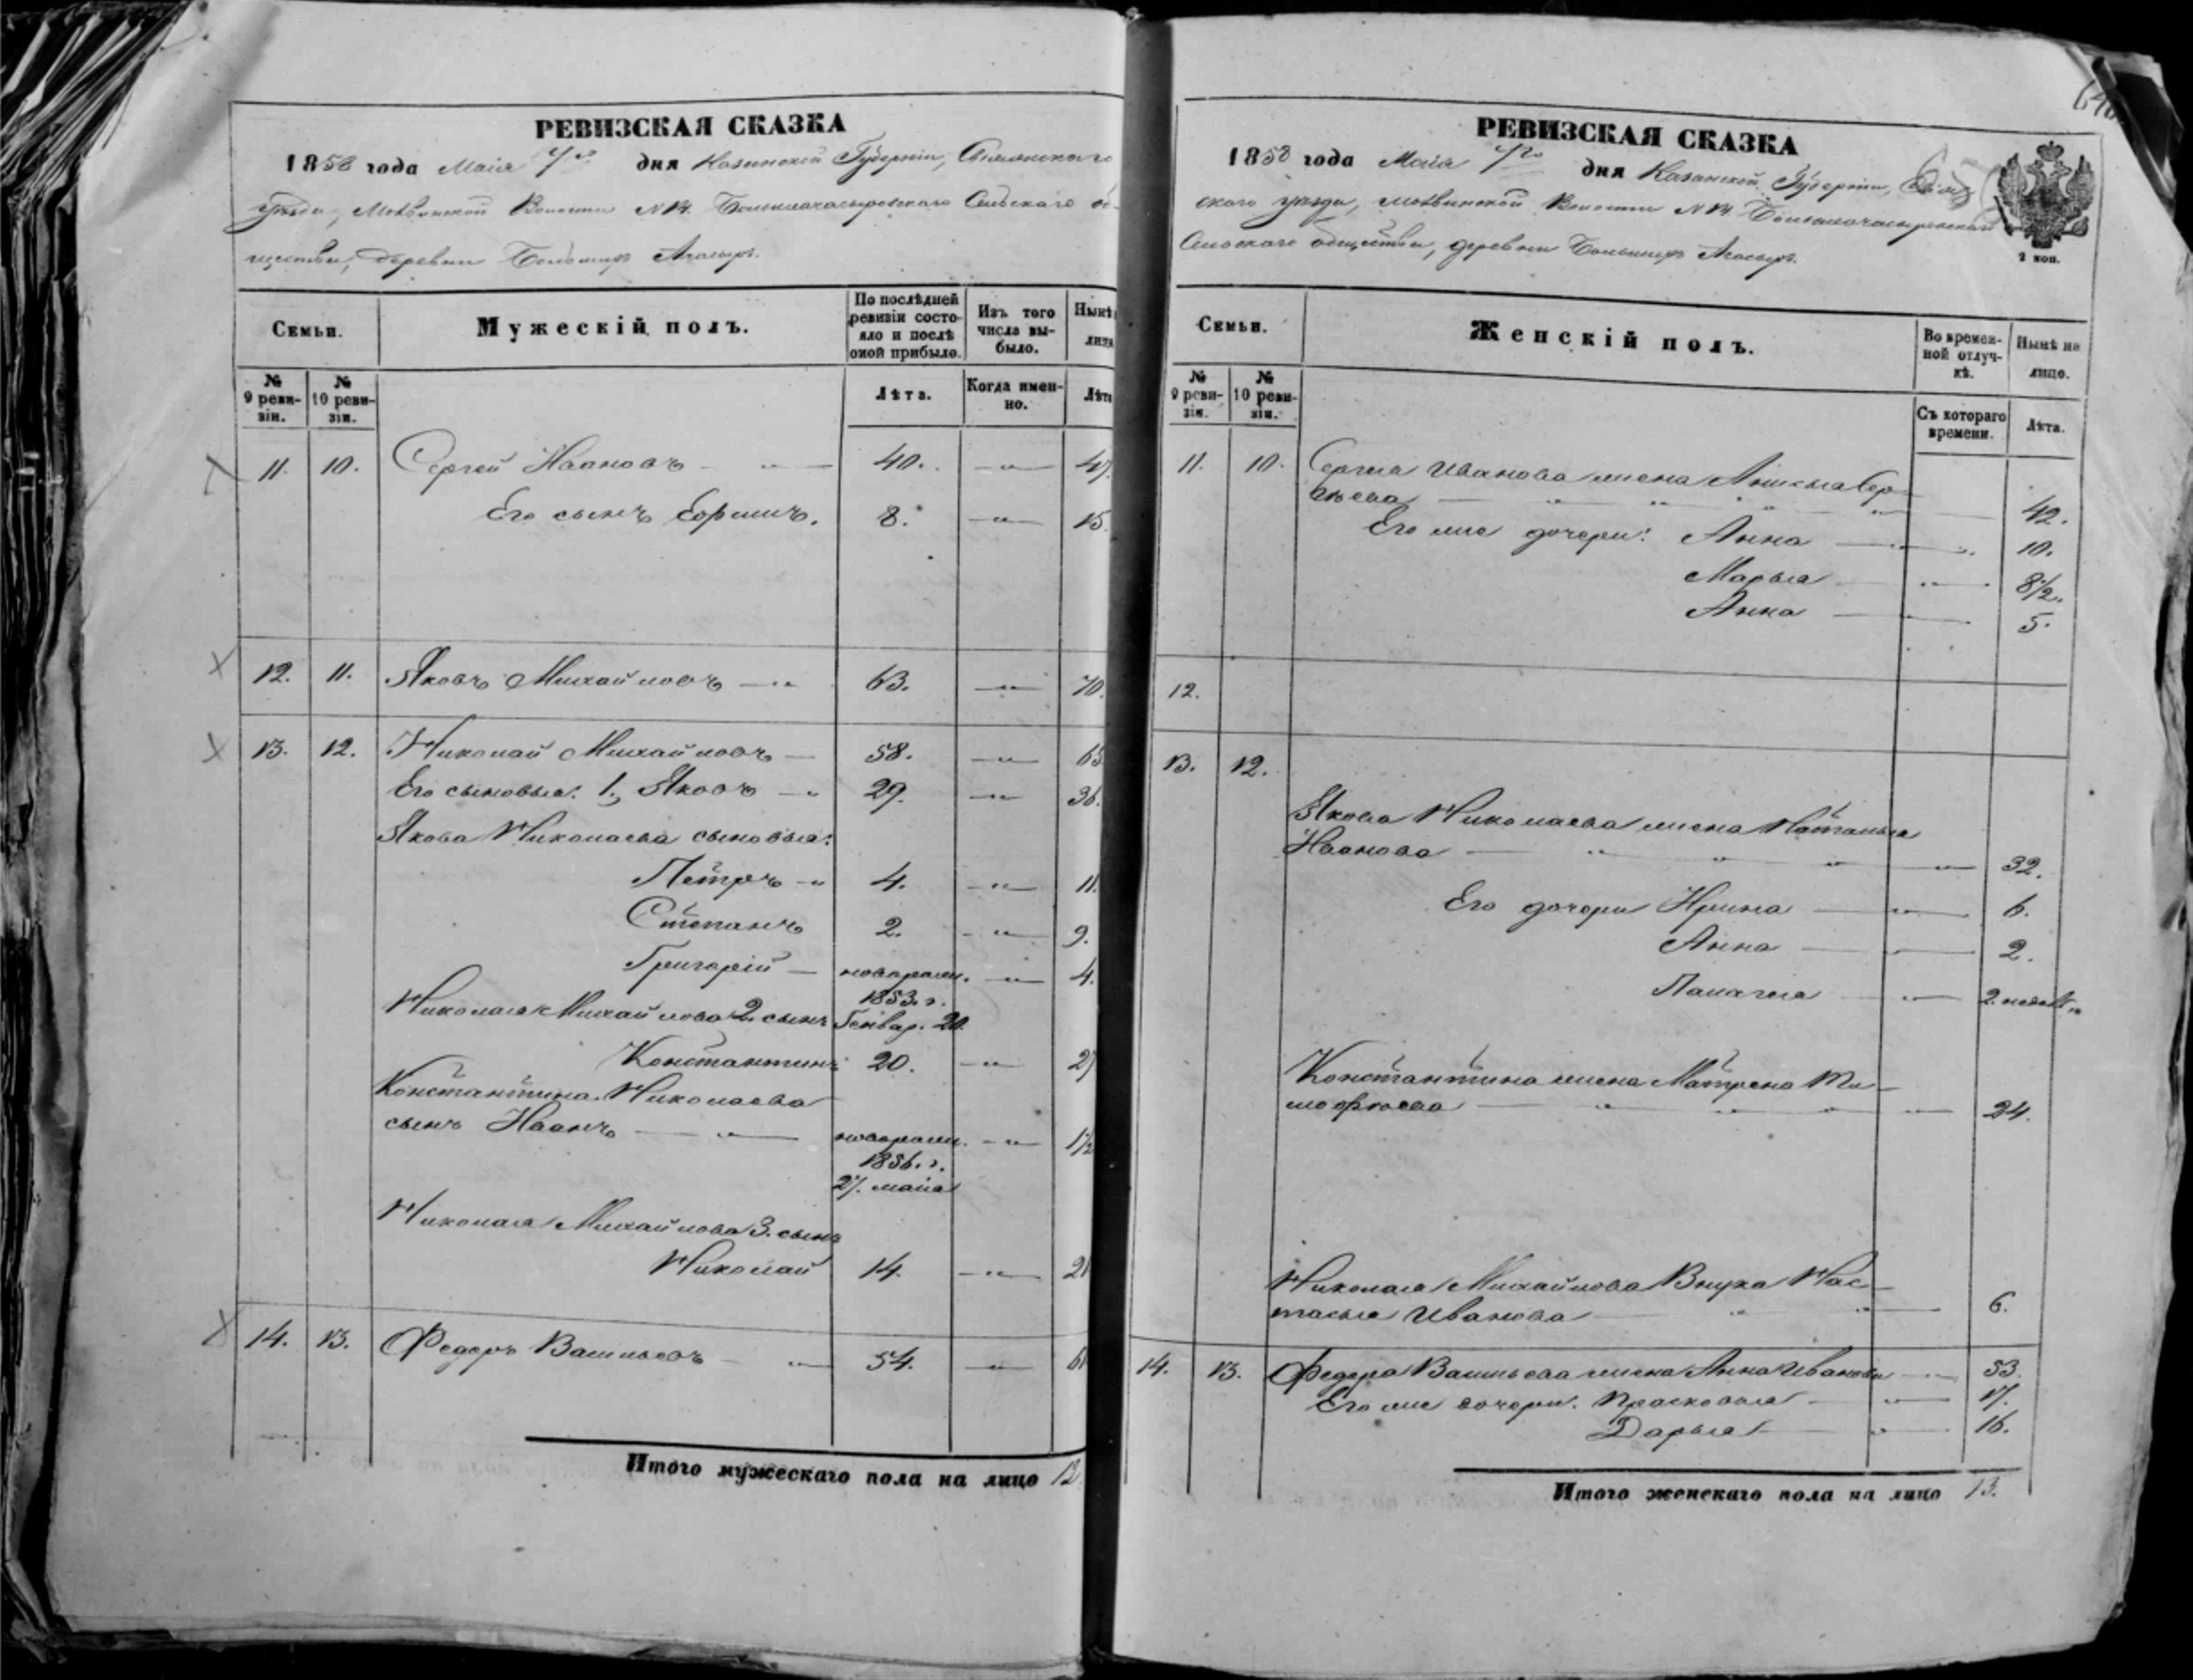 РЕВИЗСКАЯ СКАЗКА
1858 года Маія 7го дня Казанской Губерніи, Свіяжскаго
уѣзда, Волости № 14. Сельскаго об-
щества, деревни Большихъ
Семьи.
Мужескій полъ.
По послѣдней ревизіи состояло и послѣ оной прибыло.
Изъ того числа выбыло.
Нынѣ
лица
№ 9 ревизіи.
№ 10 ревизіи.
Лѣта.
Когда именно.
Лѣта
11. 10. Сергей Ивановъ — " — 40. — " — 47.
Его сынъ 8. — " — 15.
12. 11. Яковъ Михайловъ — " 63. — " — 70.
13. 12. Николай Михайловъ — 58. — " — 65
Его сыновья: 1., Яковъ — " 29. — " — 36.
Якова Николаева сыновья:
Петръ — " 4. — " — 11.
Степанъ 2. — " — 9.
Григорій — новорожд. — " — 4.
1853. г.
Николая Михайлова 2. сынъ Генвар. 20.
Константинъ 20. — " — 27
Константина Николаева
сынъ Иванъ — " — новорожд. — " — 1½
1856. г.
27. майа
Николая Михайлова 3. сынъ
Николай 14. — " — 21
14. 13. Федоръ Васильевъ — " — 54. — " — 61
Итого мужескаго пола на лицо 12.
РЕВИЗСКАЯ СКАЗКА
1858 года Маія 7го дня Казанской Губерніи, Свіяж
скаго уѣзда, Волости № 14.
Сельскаго общества, деревни Большихъ
2 коп.
Семьи.
Женскій полъ.
Во временной отлучкѣ.
Нынѣ на лицо.
№ 9 ревизіи.
№ 10 ревизіи.
Съ котораго времени.
Лѣта.
11. 10. Сергея Иванова жена Сер-
гѣева — " " " " — 42.
Его же дочери: Анна — " — 10.
Марья — " — 8½.
Анна — " — 5.
12.
13. 12.
Якова Николаева жена Наталья
Иванова — " " " " — 32.
Его дочери Ирина — " — 6.
Анна — " — 2.
Палагея — " — 2 недѣл.
Константина жена Матрена Ти-
мофѣева — " " " — 24.
Николая Михайлова Внука Нас-
тасья Иванова — " " — 6.
14. 13. Федора Васильева жена Анна Иванова — 53.
Его же дочери: Прасковья — " — 17.
Дарья — " — 16.
Итого женскаго пола на лицо 13.